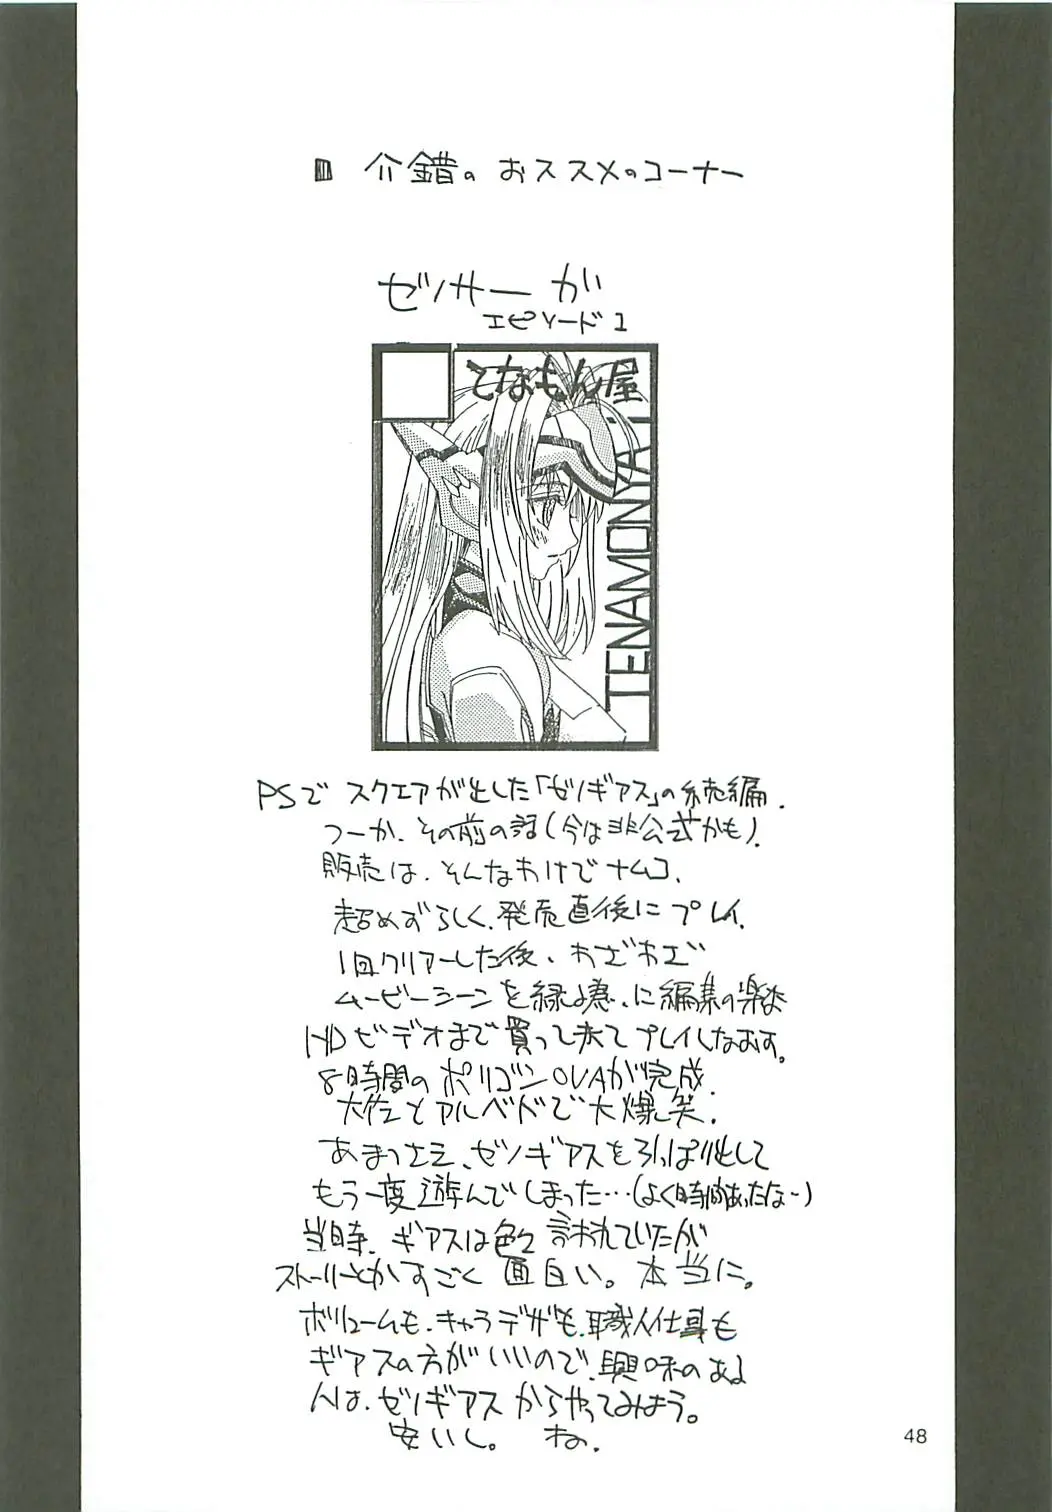 介錯のおススメのコーナー
ゼノサーガ
エピソード1
てなもん屋
TENAMONYA
PSでスクエアが出した「ゼノギアス」の続編。
つーか、その前の話(今は非公式かも)。
販売は、そんなわけでナムコ。
超めずらしく、発売直後にプレイ。
1回クリアーした後、わざわざ
ムービーシーンを録る為、に編集の楽な
HDビデオまで買って来てプレイしなおす。
8時間のポリゴンOVAが完成。
大佐とアルベドで大爆笑。
あまつさえ、ゼノギアスを引っぱり出して
もう一度遊んでしまった…(よく時間あったなー)
当時、ギアスは色々言われていたが
ストーリーとかすごく面白い。本当に。
ボリュームも、キャラデザも、職人仕事も
ギアスの方がいいので、興味のある
人は、ゼノギアスからやってみよう。
安いし。ね。
48